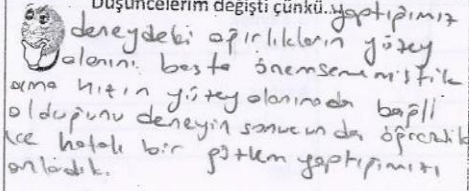 Düşüncelerim değişti çünkü..yaptığımız
deneydeki ağırlıkların yüzey
alanını başta önemsememiştik
ama hızın yüzey alanınada bağlı
olduğunu deneyin sonucunda öğrendik
ve hatalı bir gözlem yaptığımızı
anladık.